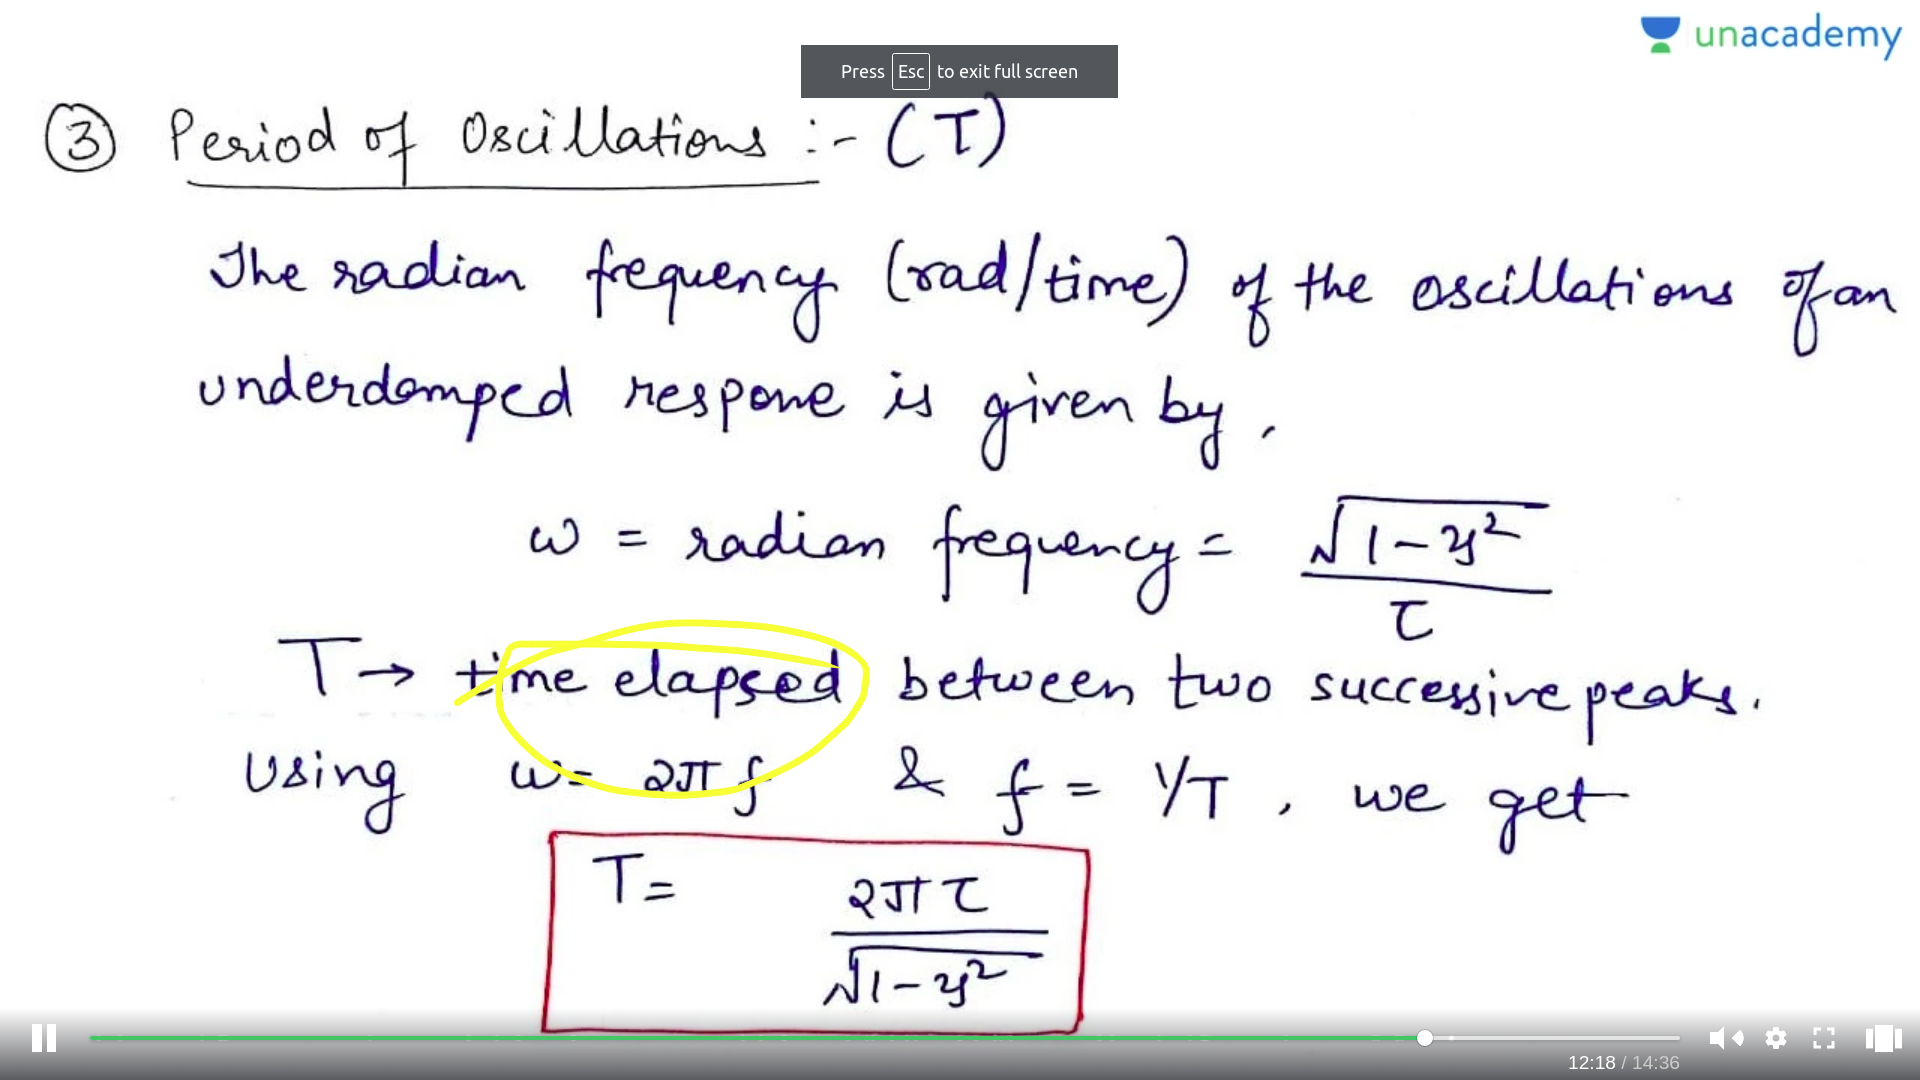 unacademy
Press Esc to exit full screen
③ Period of Oscillations :- (T)
The radian frequency (rad/time) of the oscillations of an
underdamped respone is given by,
ω = radian frequency = √1-ξ² / τ
T → time elapsed between two successive peaks.
Using ω = 2πf & f = 1/T, we get
T = 2πτ / √1-ξ²
12:18 / 14:36